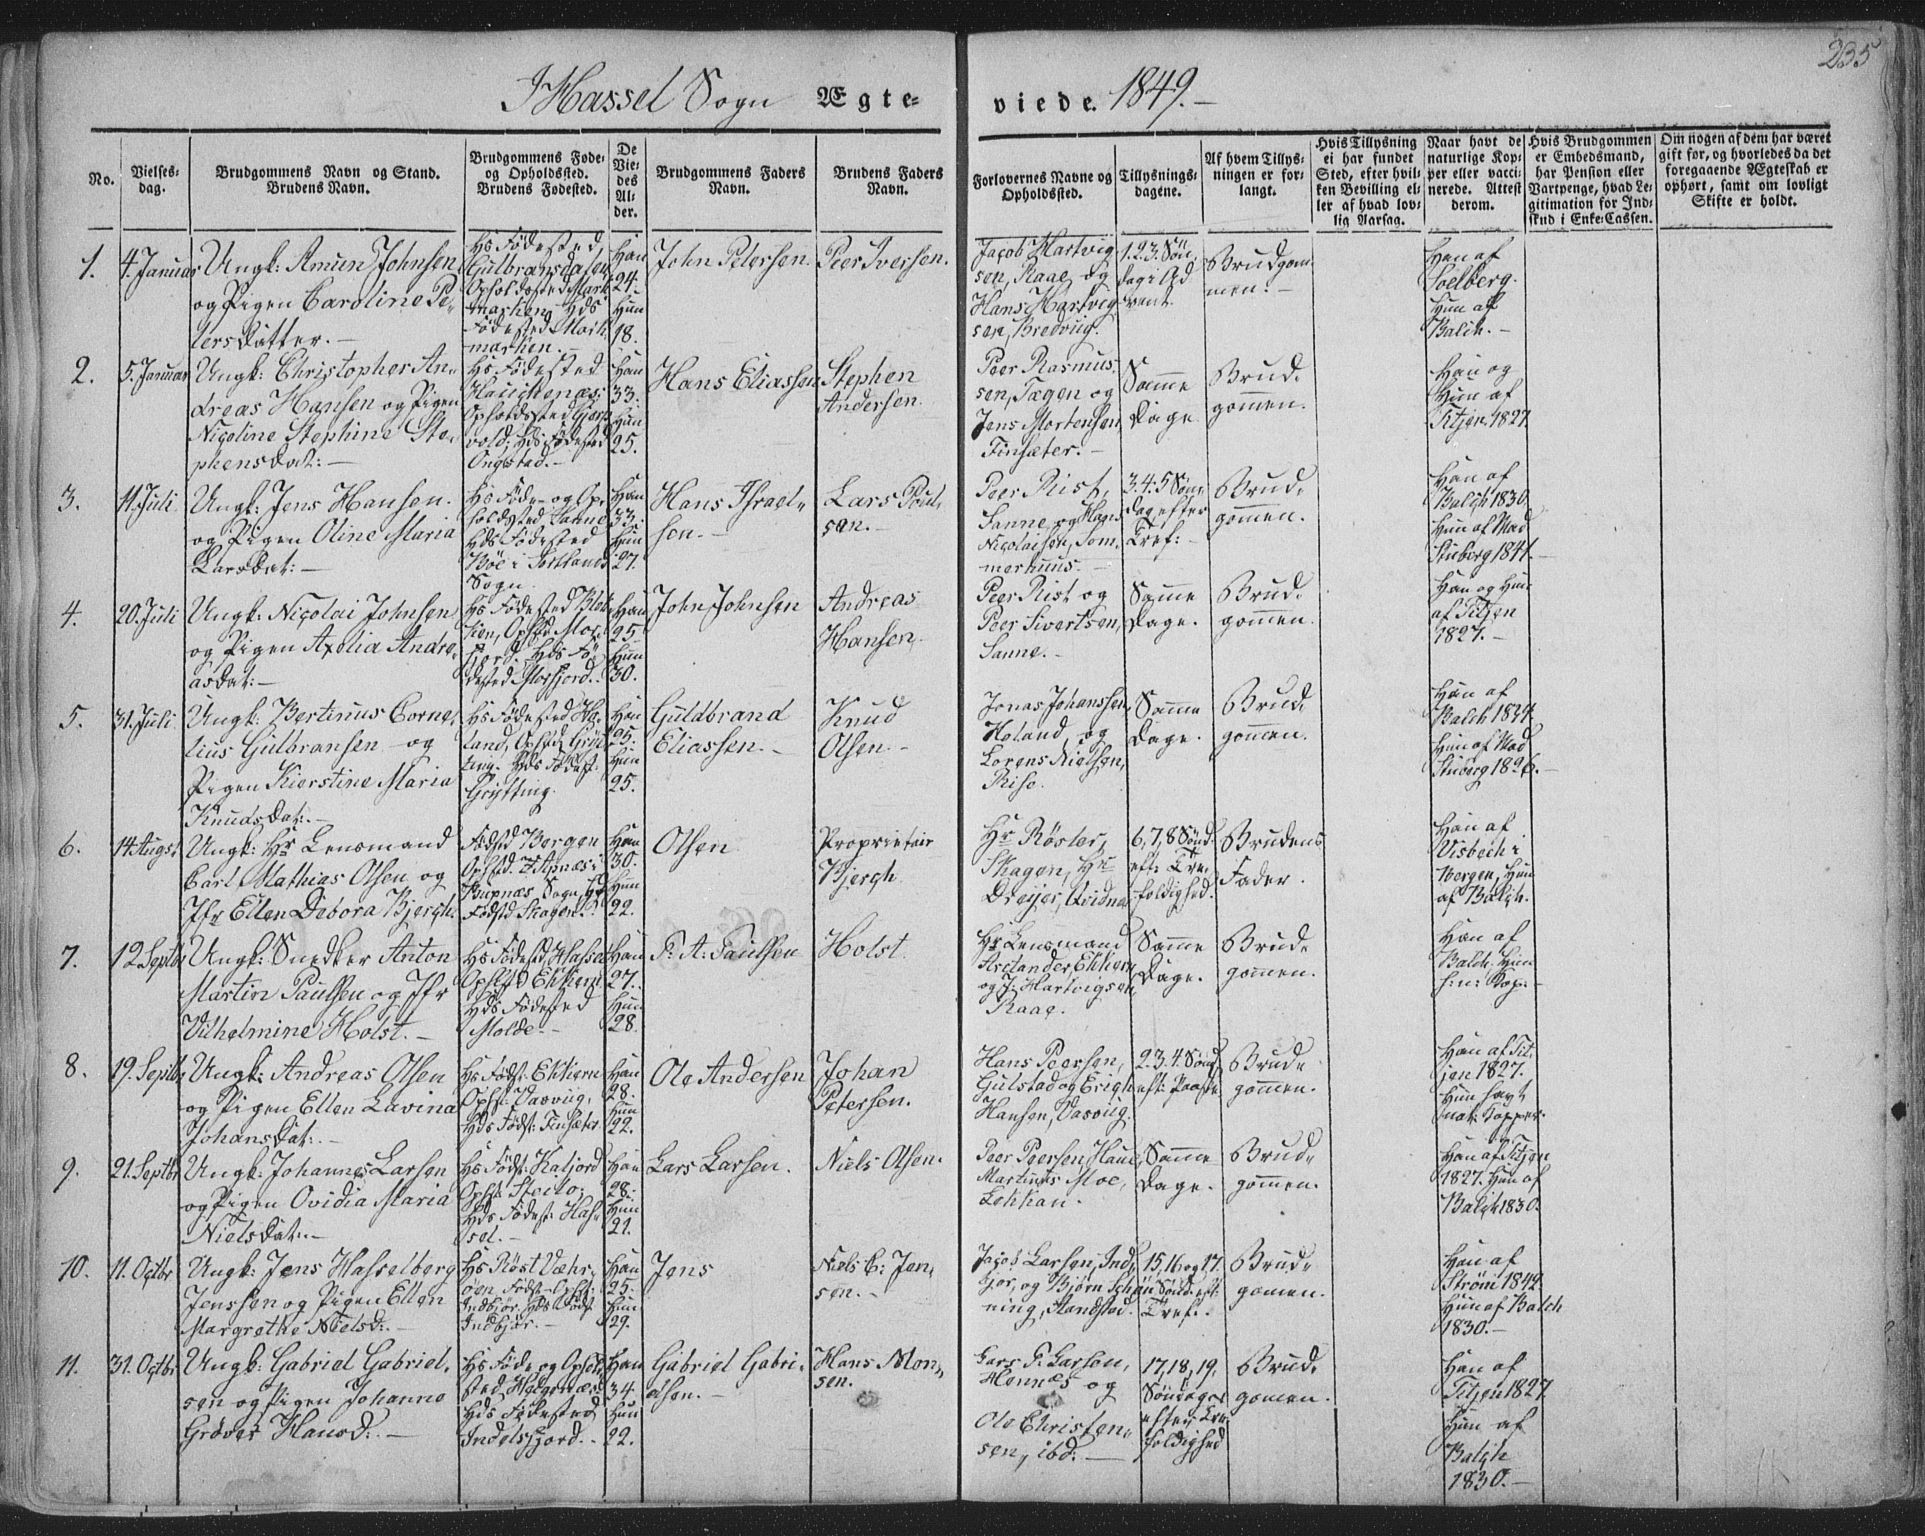 235
I Hassel Sogn Ægte-
viede. 1849.-
No.
Vielses-
dag.
Brudgommens Navn og Stand.
Brudens Navn.
Brudgommens Føde-
og Opholdssted.
Brudens Fødested.
De
Vie-
des
Al-
der.
Brudgommens Faders
Navn.
Brudens Faders
Navn.
Forlovernes Navne og
Opholdssted.
Tillysnings-
dagene.
Af hvem Tillys-
ningen er for-
langt.
Hvis Tillysning
ei har fundet
Sted, efter hvil-
ken Bevilling el-
ler af hvad lov-
lig Aarsag.
Naar havt de
naturlige Kop-
per eller vacci-
nerede. Attest
derom.
Hvis Brudgommen
er Embedsmand,
har Pension eller
Vartpenge, hvad Le-
gitimation for Ind-
skud i Enke-Cassen.
Om nogen af dem har været
gift før, og hvorledes da det
foregaaende Ægteskab er
ophørt, samt om lovligt
Skifte er holdt.
1.
4. Januar
Ungk: Amun Johnsen
og Pigen Caroline Pe-
tersdatter.-
Hs Födested,
Gulbransdalen
Opholdssted Mark
marken, Hds
Födested Mark
marken.-
Han
24.
Hun
18.
John Petersen.
Peer Iversen.
Jacob Hartvig
sen, Raae, og
Hans Hartvig
sen, Bredvig.
1.2.3. Sön
dag i Ad
vent.
Brudgom
men.-
Han af
Soelberg.
Hun af
Balch.-
2.
5. Januar
Ungk: Christopher An-
dreas Hansen og Pigen
Nicoline Stephine Ste-
phensdat:-
Hs Födested
Haukenæs
Opholdssted
vold; Hds: Födested
Ongstad.-
Han
33.
Hun
25.
Hans Eliassen
Stephen
Andersen.
Peer Rasmus
sen, Tægen og
Jens Mortensen,
Finsæter.-
Samme
Dage
Brud-
gommen.
Han og
Hun af
Titjen 1827.
3.
11. Juli
Ungk: Jens Hansen.
og Pigen Oline Maria
Larsdat:-
Hs Föde- og Op-
holdssted Sanne
Hds Födested
Böe i Sortlands
Sogn.
Han
33.
Hun
27.
Hans Israel-
sen.-
Lars Poul
sen.-
Peer Rist,
Sanne, og Hans
Nicolaisen, Som
merhuus.-
3.4.5 Sön-
dag efter
Tref:-
Brud-
gommen.
Han af
Balch 1830
Hun af Mad
Stuberg 1841.-
4.
20. Juli
Ungk: Nicolai Johnsen
og Pigen Axelia Andre-
asdat:-
Hs Födested Blok
ken, Ophsd Mor
fjord. Hds Fö
dested Morfjord.
Han
25.
Hun
30.
John Johnsen
Andreas
Hansen.-
Peer Rist og
Peer Sivertsen,
Sanne.-
Samme
Dage.
Brud-
gommen.
Han og Hun
af Titjen
1827.-
5.
31. Juli
Ungk: Bertinus Corne-
lius Gulbransen og
Pigen Kierstine Maria
Knudsdat:-
Hs Födested Ho-
land, Ophsd Gryt
ting. Hds Födest:
Grytting.
Han
25.
Hun
25.
Guldbrand
Eliassen.-
Knud
Olsen.-
Jonas Johanssen,
Holand, og
Lorens Nielsen,
Rise.
Samme
Dage.
Brud-
gommen.
Han af
Balch 1824.
Hun af Mad
Stuberg 1826.-
6.
14 Augst
Ungk: Hr Lensmand
Carl Mathias Olsen og
Jfr Ellen Debora Bjergh.
Födsd Bergen
Ophsd. i
Bupnæs Sogn, Hds
Födsd Skagen.
Han
30.
Hun
22.
Olsen
Proprietair
Bjergh
Hr Röster,
Skagen, Hr
Dreyer, Qvidnæ
6,7,8 Sönd.
eft: Tre-
foldighed.
Brudens
Fader.
Han af
Visbech i
Bergen, Hun
af Balch.
7.
12. Septbr
Ungk: Snedker Anton
Martin Paulsen og Jfr
Vilhelmine Holst.-
Hs Födested Hassel
Ophsd Ekkiern
Hds Födested
Molde.-
Han
27.
Hun
28.
P. A. Paulsen
Holst.
Hr Lensmand
Arctander Ekkiern
og J. Hartvigsen
Raae.
Samme
Dage.
Brud-
gommen.
Han af
Balch. Hun
h: n: Kop:-
8.
19. Septbr
Ungk: Andreas Olsen
og Pigen Ellen Lavina
Johansdat:-
Hs Födst: Ekkiern
Ophst: Vasvug,
Hds Födst: Finsæter.
Han
28.
Hun
22.
Ole Andersen
Johan
Petersen.
Hans Peersen,
Gulstad og Erich
Hansen, Vasvug.
2.3.4. Sönd
eft: Paaske
Brud-
gommen.
Han af Tit-
jen 1827.
Hun havt
nat: Kopper.
9.
21. Septbr
Ungk: Johannes Larsen
og Pigen Ovidia Maria
Nielsdat:-
Hs Födst: Kaljord
Ophst: Steilo,
Hds Födest: Has-
sel.-
Han
28.
Hun
21.
Lars Larsen.
Niels Olsen.
Peer Peersen Haue,
Martinus Moe,
Lekkan.
Samme
Dage.
Brud-
gommen.
Han af Titjen
1827. Hun af
Balch 1830.
10.
11. Octbr
Ungk: Jens Hasselberg
Jenssen og Pigen Ellen
Margrethe Nielsd:-
Hs Röst Væhr-
öen Födst Ophst:
Indbjör. Hds Födst
Indbjör.-
Han
25.
Hun
29.
Jens
Niels C: Jen-
sen.-
Jacob Larsen, Ind-
jor, og Björn Schön
ning, Sandstad.
15, 16 og 17.
Sönd: eft:
Tref:-
Brud-
gomen.
Han af
Ström 1842.
Hun af Balch
1830.-
11.
31. Octbr
Ungk: Gabriel Gabriel-
sen og Pigen Johanne
Gröver Hansd:-
Hs Föde og Ophold
sted, Helgenæs
Hds Födested
Indelsfjord.-
Han
34.
Hun
22.
Gabriel Gabri-
elsen.-
Hans Mon-
sen.
Lars P. Larsen,
Hennes og
Ole Christen-
sen, ibd:-
17, 18, 19,
Söndager
efter Tre-
foldighed
Brud-
gomen.
Han af
Titjen 1827
Hun af
Balch
1830.-